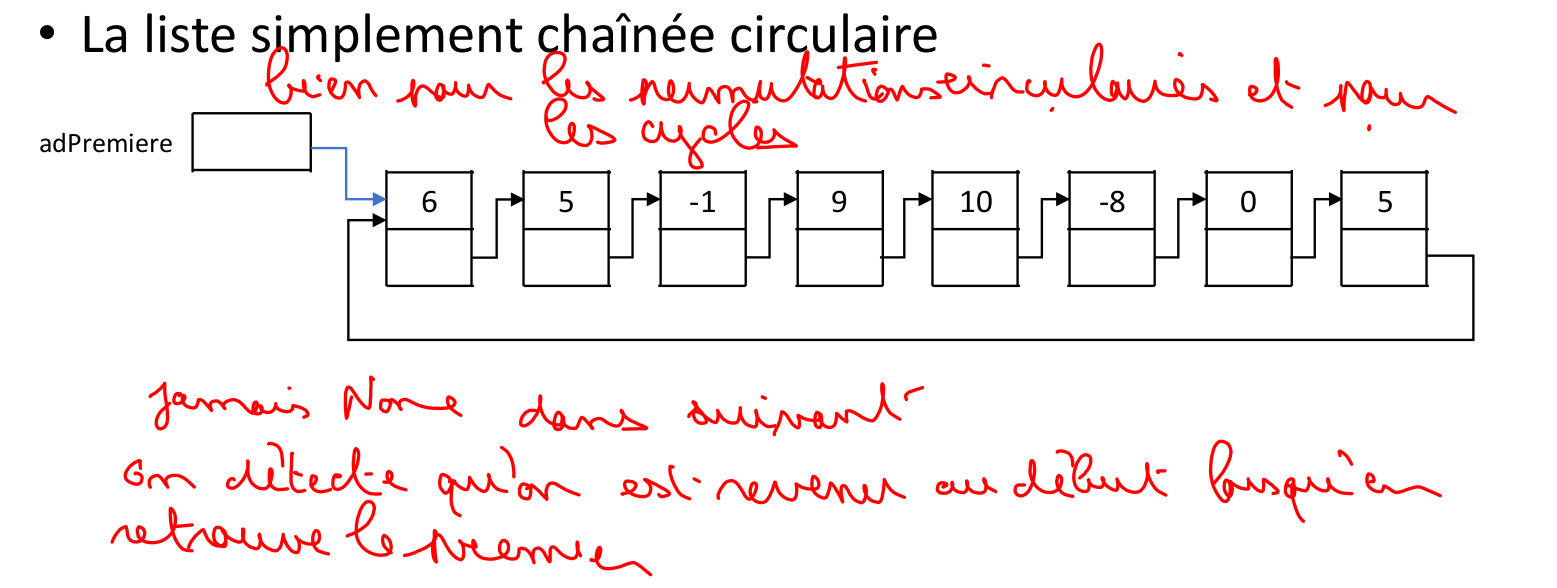 • La liste simplement chaînée circulaire
bien pour les permutations circulaires et pour
les cycles
adPremiere
6 5 -1 9 10 -8 0 5
Jamais None dans suivant
on détecte qu'on est revenu au début lorsqu'on
retrouve le premier